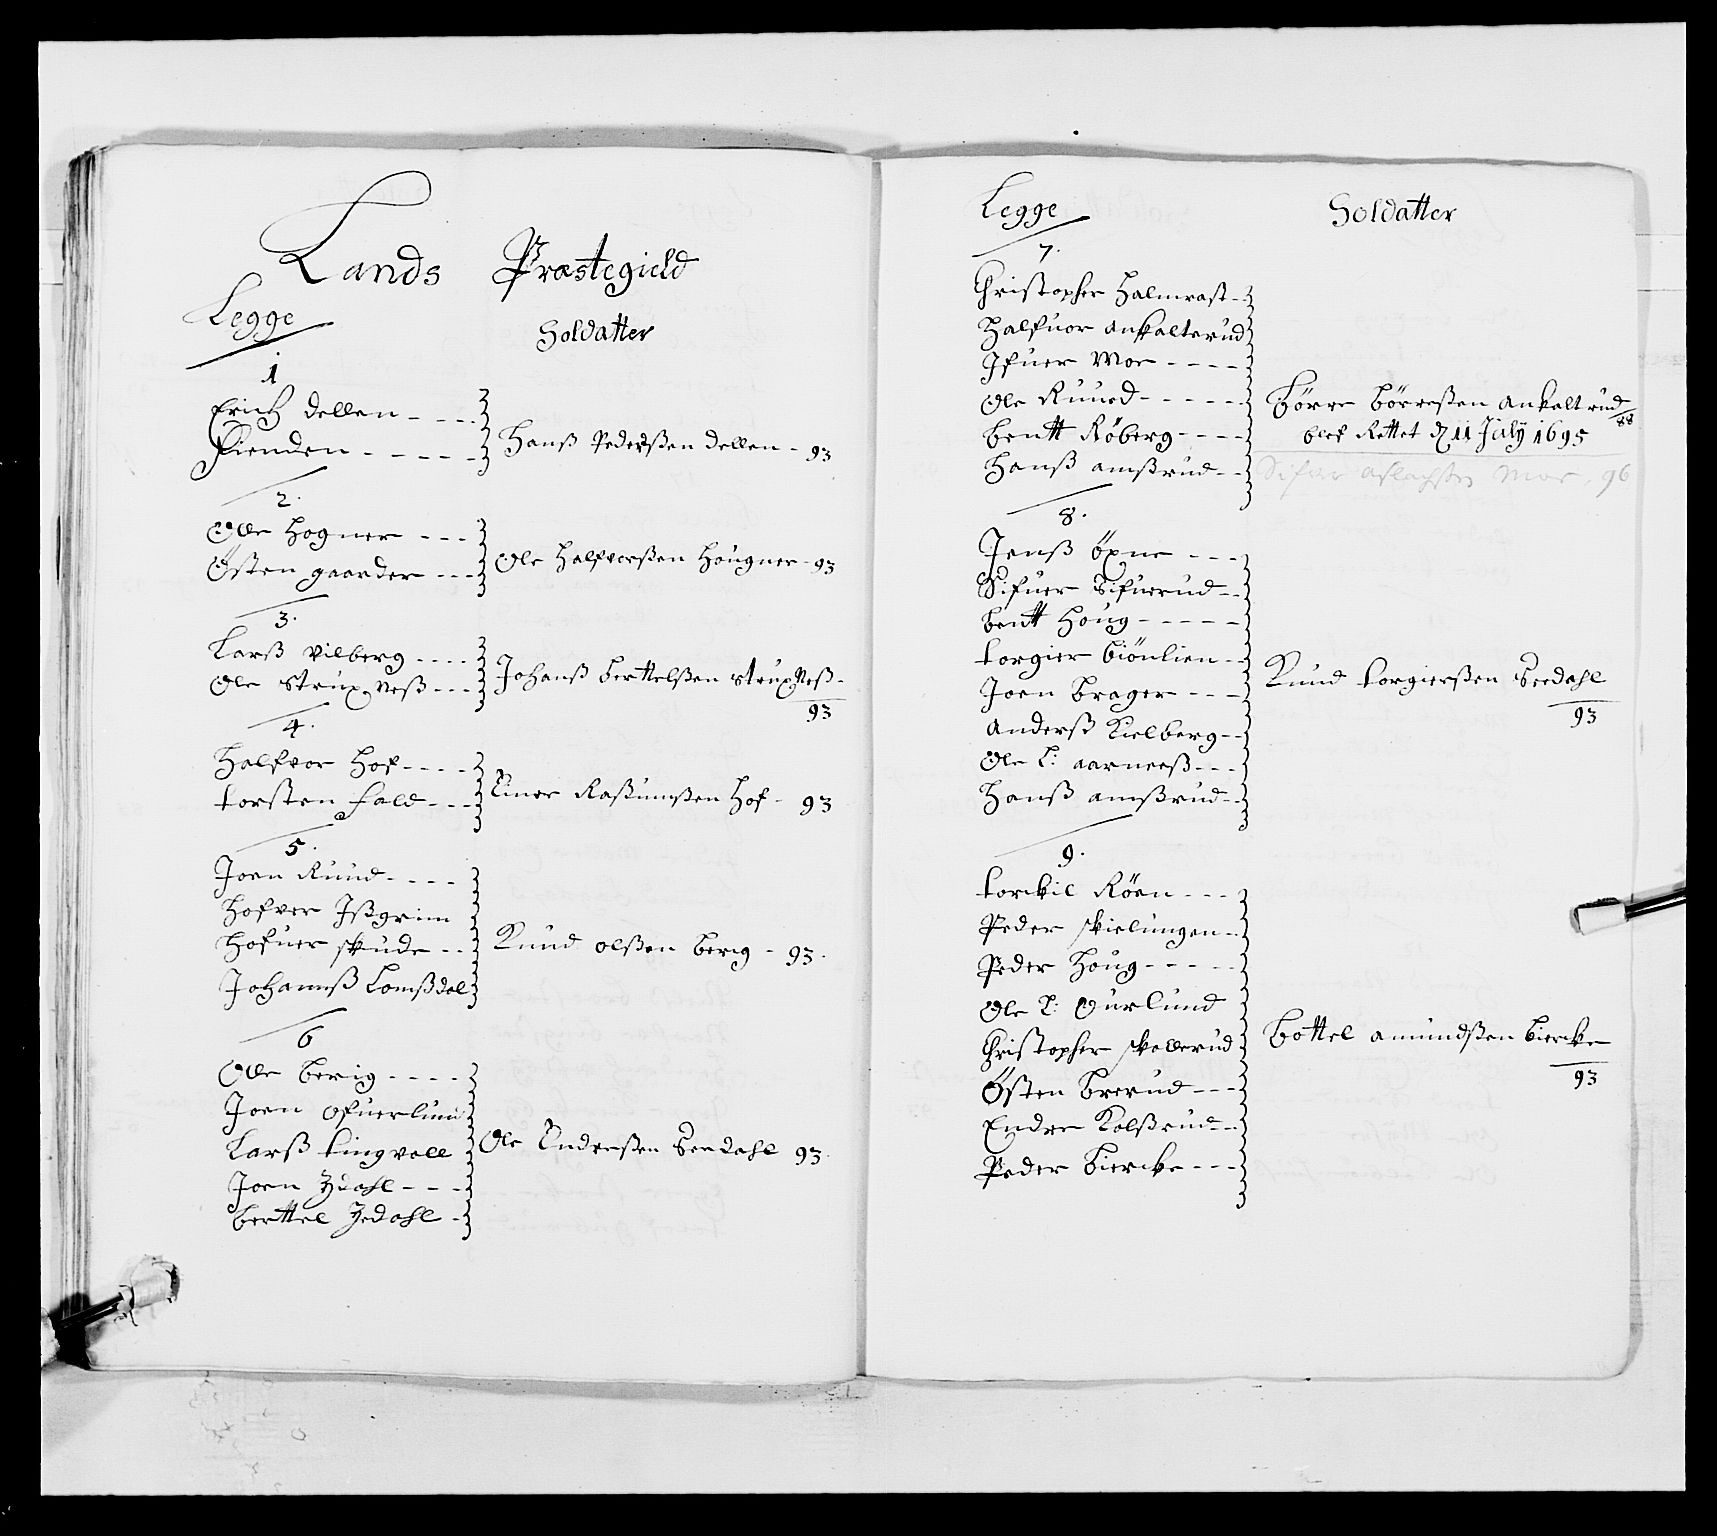 Lands Præstegield
Legge
Soldatter
1
Erich dellen
Fienden
Hanß Pederßen dellen - 93
2.
Olle Hogner
Østen gaarder
Ole Halfvorßen Hougner - 93
3.
Larß Vilberg
Ole StruxNeß
Johanß berttelßen struxNeß -
93
4.
Halfvor Hof
torsten fald
Einer Raßmußen Hof - 93
5.
Joen Ruud
Hofver Ißgrim
Hofuer skude
Johanneß Lomßdal
Knud olßen berig - 93.
6
Olle berig
Joen Ofuerlund
Larß tingvold
Joen Jedahl
berttel Jedahl
Ole Endreßen Seedahl 93.
Legge
Soldatter
7.
Christopher Halmrast
Halfuor ankalterud
Ifuer Moe
Ole Ruued
bentt Røberg
Hanß amßrud
børre børreßen ankaltrud
88
blef Rettet d 11 July 1695
Sifver aslachßen Moe, 96
8.
Jenß öxne
Sifuer Sifuerud
bentt Houg
torgier biönlien
Joen brager
Anderß Kielberg
Ole L: aarneeß
Hanß amßrud
Knud torgierßen Seedahl
93
9.
torckil Röen
Peder skielungen
Peder Houg
Ole L: Ourlund
Christopher skollerud
Østen brerud
Endre Kolßrud
Peder biercke
bottel amundßen biercke
93